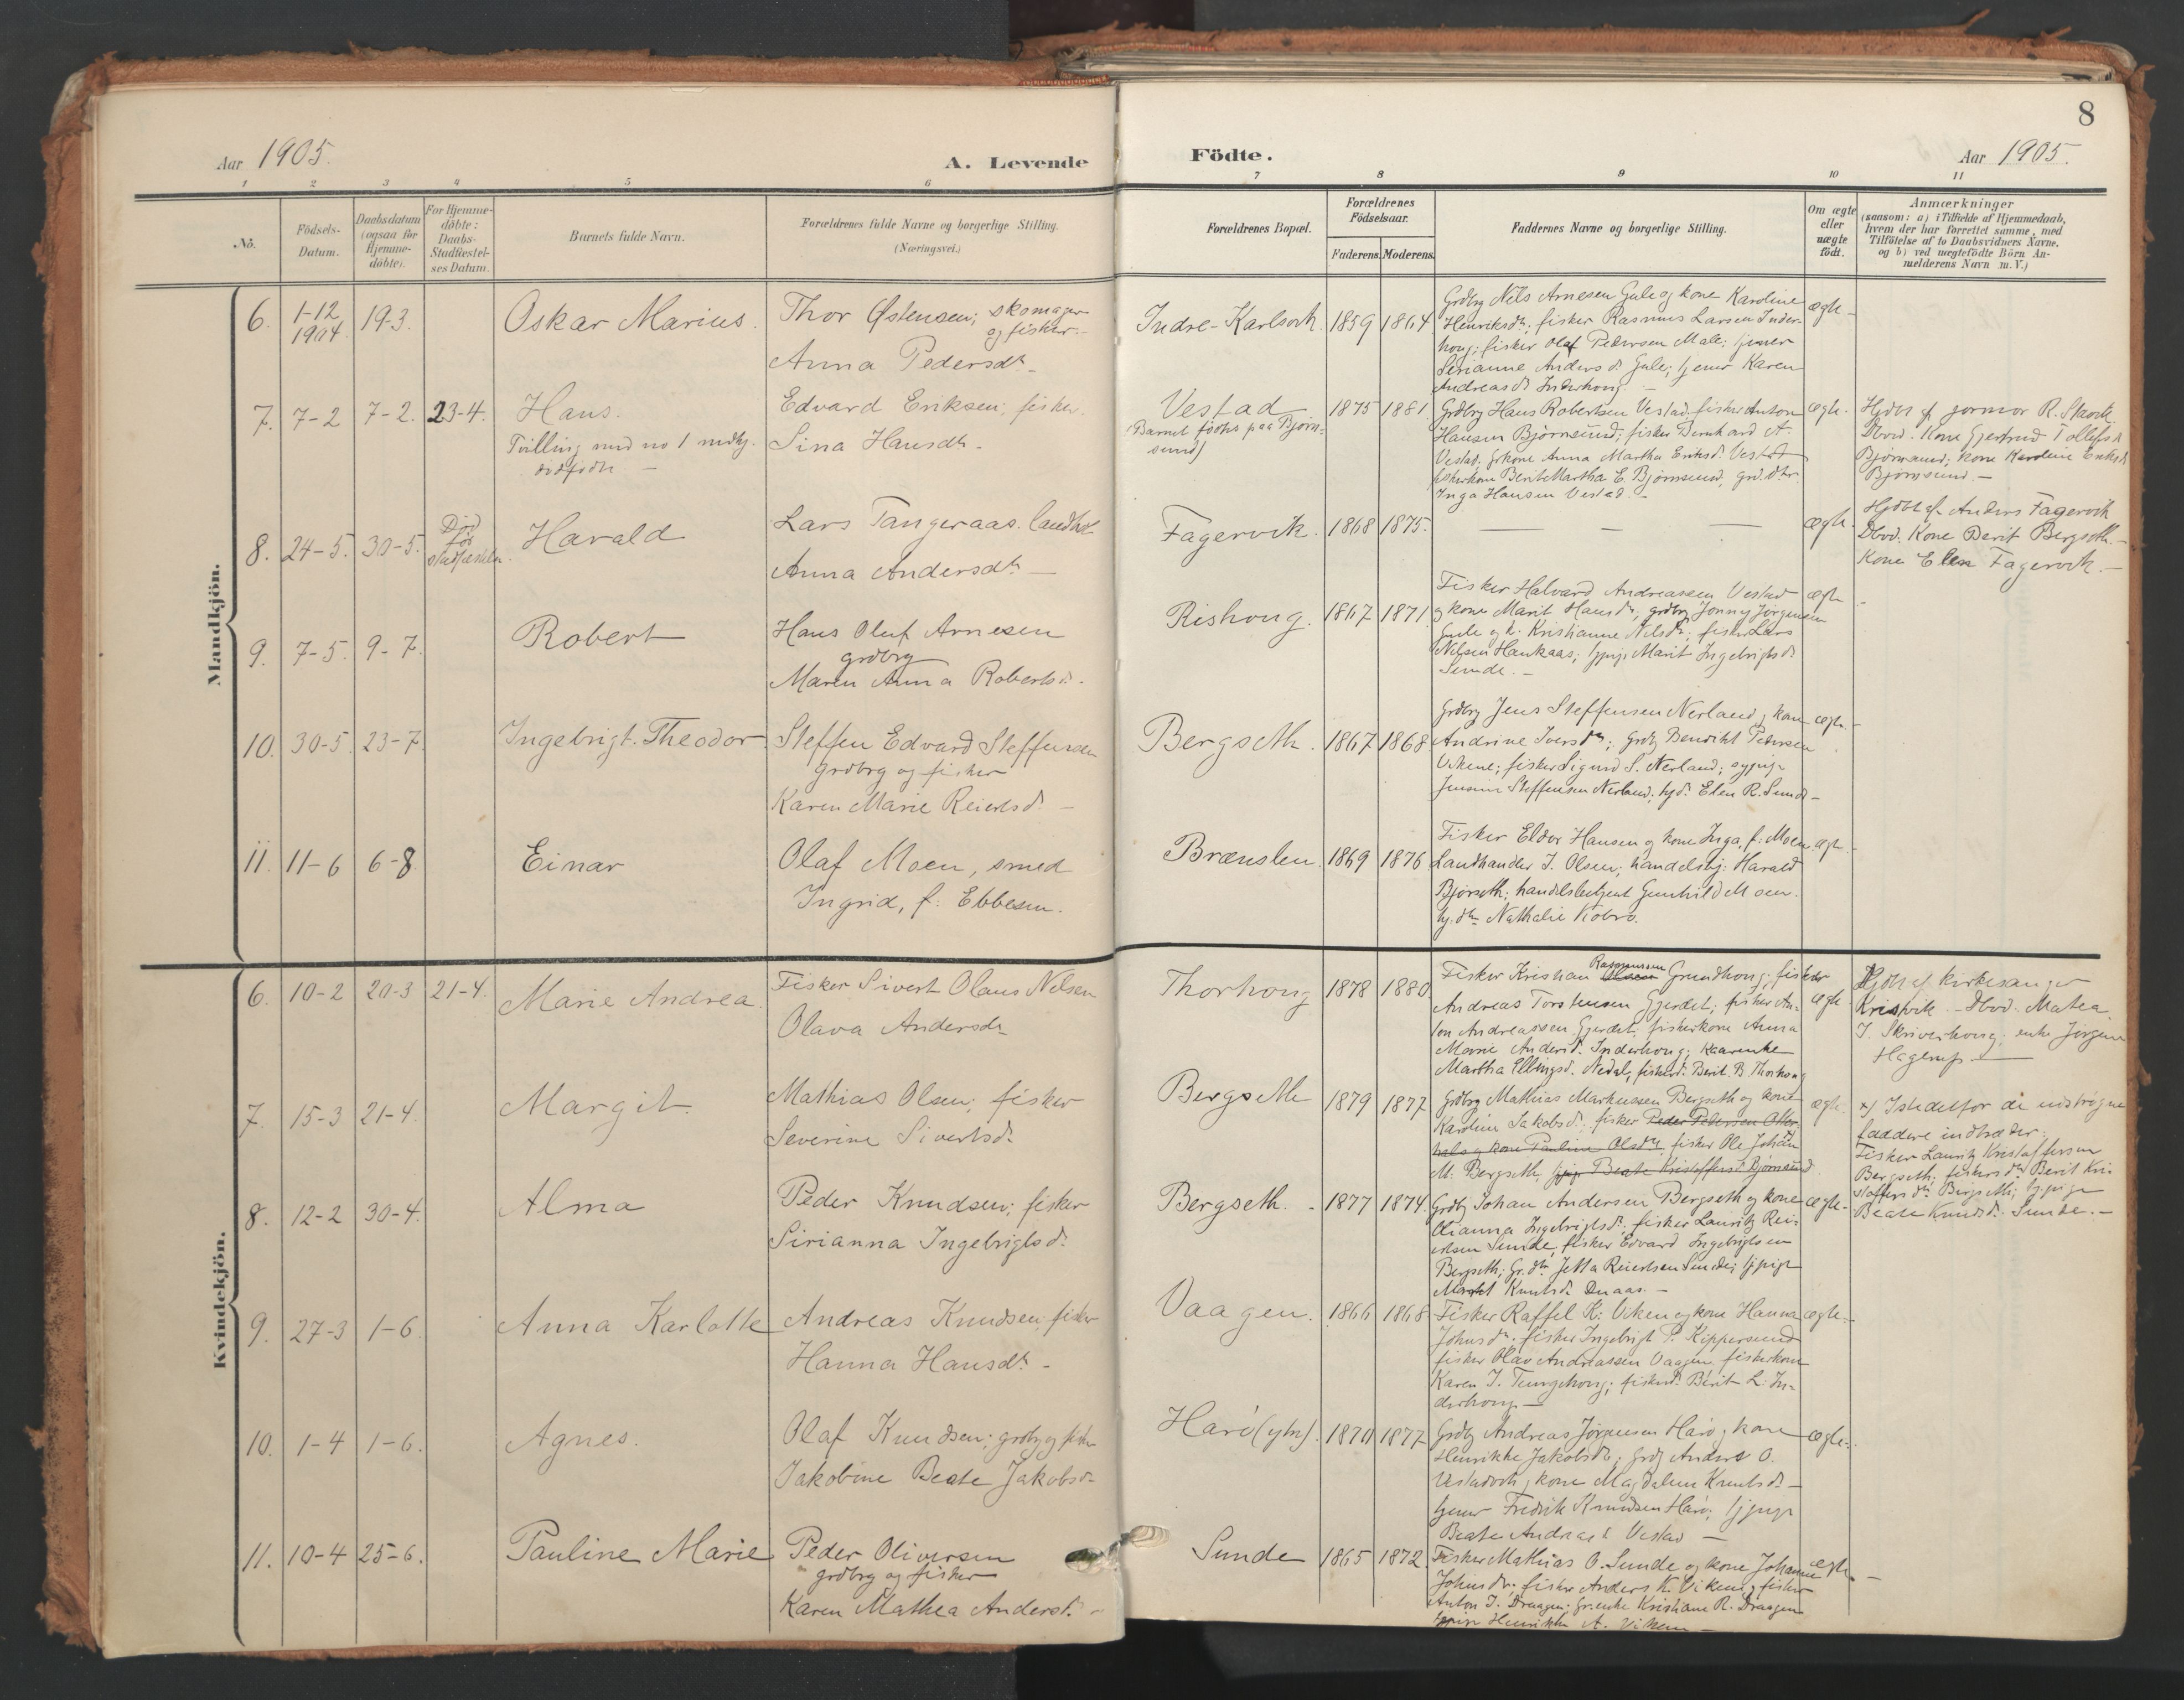 8
Aar 1905.
A. Levende
Födte.
Aar 1905.
1 2 3 4 5 6 7 8 9 10 11
No.
Födsels-
Datum.
Daabsdatum
(ogsaa for
Hjemme-
döbte).
For Hjemme-
döbte:
Daabs-
Stadfæstel-
ses Datum.
Barnets fulde Navn.
Forældrenes fulde Navne og borgerlige Stilling.
(Næringsvei.)
Forældrenes Bopæl.
Forældrenes
Födselsaar.
Faderens. Moderens.
Faddernes Navne og borgerlige Stilling.
Om ægte
eller
uægte
födt.
Anmærkninger
(saasom: a) i Tilfælde af Hjemmedaab,
hvem der har forrettet samme, med
Tilföielse af to Daabsvidners Navne.
og b) ved uægtefödte Börn An-
melderens Navn m. V.)
Mandkjön.
6. 1-12
1904 19-3. Oskar Marius.
Thor Østensen; skomager
og fisker.
Anna Pedersdt.
Indre-Karlsvik. 1859 1864
Grdbrg Nils Arnesen Gule og kone Karoline
Henriksdt; fisker Rasmus Larsen Inder-
houg; fisker Olaf Pedersen Male;
Serianne Andersd. Gule; Karen
Andreasd. Inderhoug.
ægte
7. 7-2 7-2. 23-4. Hans.
Tvilling med no 1 mdkj.
dødfødte
Edvard Eriksen; fisker.
Sina Hansdt.
Vestad
(Barnet fødtes paa Bjørn-
sund)
1875 1881.
Grdbrg Hans Robertsen Vestad. fisker Anton
Hansen Bjørnsund; fisker Bernhard A.
Vestad; grkone Anna Martha Eriksd. Vestad
fiskerkone Berit Martha E. Bjørnsund, grd.dtr
Inga Hansen Vestad.
ægte.
Hjdbt af jormor R. Stavik
Dbvd. Kone Gjertrud Tollefsd.
Bjørnsund; kone Karoline Eriksd.
Bjørnsund.
8. 24-5. 30-5. Død
før
stadfæstelsen. Harald
Lars Tangeraas. landh
Anna Andersdt.
Fagervik. 1868 1875.
ægte.
Hjdbt af Anders Fagervik
Dbvd. Kone Berit Bergseth.
Kone Elen Fagervik.
9. 7-5. 9-7. Robert
Hans Oluf Arnesen
grdbrg
Maren Anna Robertsd.
Rishoug. 1867 1871.
Fisker Halvard Andreassen Vestad
og kone Marit Hansdt; grdbrg Jonny Jørgensen
Gule og k. Kristianne Nilsdt; fisker Lars
Nilsen Haukaas; Marit Ingebrigtsd.
Sunde.
ægte
10. 30-5. 23-7. Ingebrigt Theodor.
Steffen Edvard Steffensen
grdbrg og fisker
Karen Marie Reiertsd.
Bergseth. 1867 1868.
Grdbrg Jens Steffensen Nerland, kone
Andrine Iversdt; grdbrg Benedikt Pedersen
Vikene; fisker Sigurd S. Nerland;
Steffensen Nerland; Elen R. Sunde
ægte.
11. 11-6 6-8 Einar
Olaf Moen, smed
Ingrid, f. Ebbesen.
Brænslen. 1869 1876
Fisker Eldor Hansen og kone Inga, f. Moen
Landhandler J. Olsen; handelsbtj. Harald
Bjørseth; handelsbetjent Gunhild Moen.
Nathalie Kobro.
ægte.
Kvindekjön.
6. 10-2 20-3 21-4. Marie Andrea.
Fisker Sivert Olaus Nelsen
Olava Andersdt.
Thorhoug 1878 1880
Rasmussen
Fisker Kristian Grundhoug; fisker
Andreas Torstensen Gjerdet; fisker An-
ton Andreassen Gjerdet; fiskerkone Anna
Marie Andersd. Inderhoug;
Martha Ellingsd. Nedal, fiskerd. Berit B. Thorhoug
ægte
Hjdbt af kirkesanger
Kristvik. Dbvd. Matea
J. Skriverhoug; enke Jørgine
Hagerup.
7. 15-3 21-4. Margit.
Mathias Olsen; fisker
Severine Sivertsd.
Bergseth 1879 1877
Grdbrg Mathias Markussen Bergseth og kone
Karoline Jakobsd; fisker Peder Petersen Otter-
hals og kone Pauline Olsdt, fisker Ole Johan
M. Bergseth, Beate Kristoffersd. Bjørnsund
ægte.
x) Istedetfor de udstrøgne
faddere indtræder:
Fisker Lauritz Kristoffersen
Bergseth; fiskersdt. Berit Kri-
stoffersdt. Bergseth; tjpige
Beate Knudsd. Sunde.
8. 12-2 30-4. Alma
Peder Knudsen; fisker
Sirianna Ingebrigtsd.
Bergseth. 1877 1874.
Grdbrg Johan Andersen Bergseth og kone
Olianna Ingebrigtsdt, fisker Lauritz Rei-
ertsen Sunde, fisker Edvard Ingebrigtsen
Bergseth; Gr.dtr. Jetta Reiertsen Sunde; tjpige
Marit Knutsd. Draas.
ægte.
9. 27-3 1-6. Anna Karlotte
Andreas Knudsen, fisker
Hanna Hansdt.
Vaagen. 1866 1868
Fisker Raffel K. Viken og kone Hanna
Johnsdt. fisker Ingebrigt P. Kippersund
fisker Olav Andreassen Vaagen, fiskerkone
Karen J. Tungehoug; fiskerd. Berit L. In-
derhoug
ægte.
10. 1-4 1-6. Agnes.
Olaf Knudsen; grdbrg og fisker
Jakobine Beate Jakobsd.
Harö (ytre). 1870 1877
Grdbrg Andreas Jørgensen Harö, kone
Henrikke Jakobsdt; grdbrg Anders O.
Vestadvik, kone Magdalene Knutsd.
Fredrik Knudsen Harö; tjpige
Beate Andreasd. Vestad
ægte.
11. 10-4 25-6. Pauline Marie
Peder Oliversen
grdbrg og fisker
Karen Mathea Andersd.
Sunde 1865 1872.
Fisker Mathias O. Sunde og kone Johanne
Johnsdt; fisker Anders K. Viken, fisker
Anton J. Draagen; Gr.enke Kristiane R. Draagen
Henrikke A. Viken
ægte.